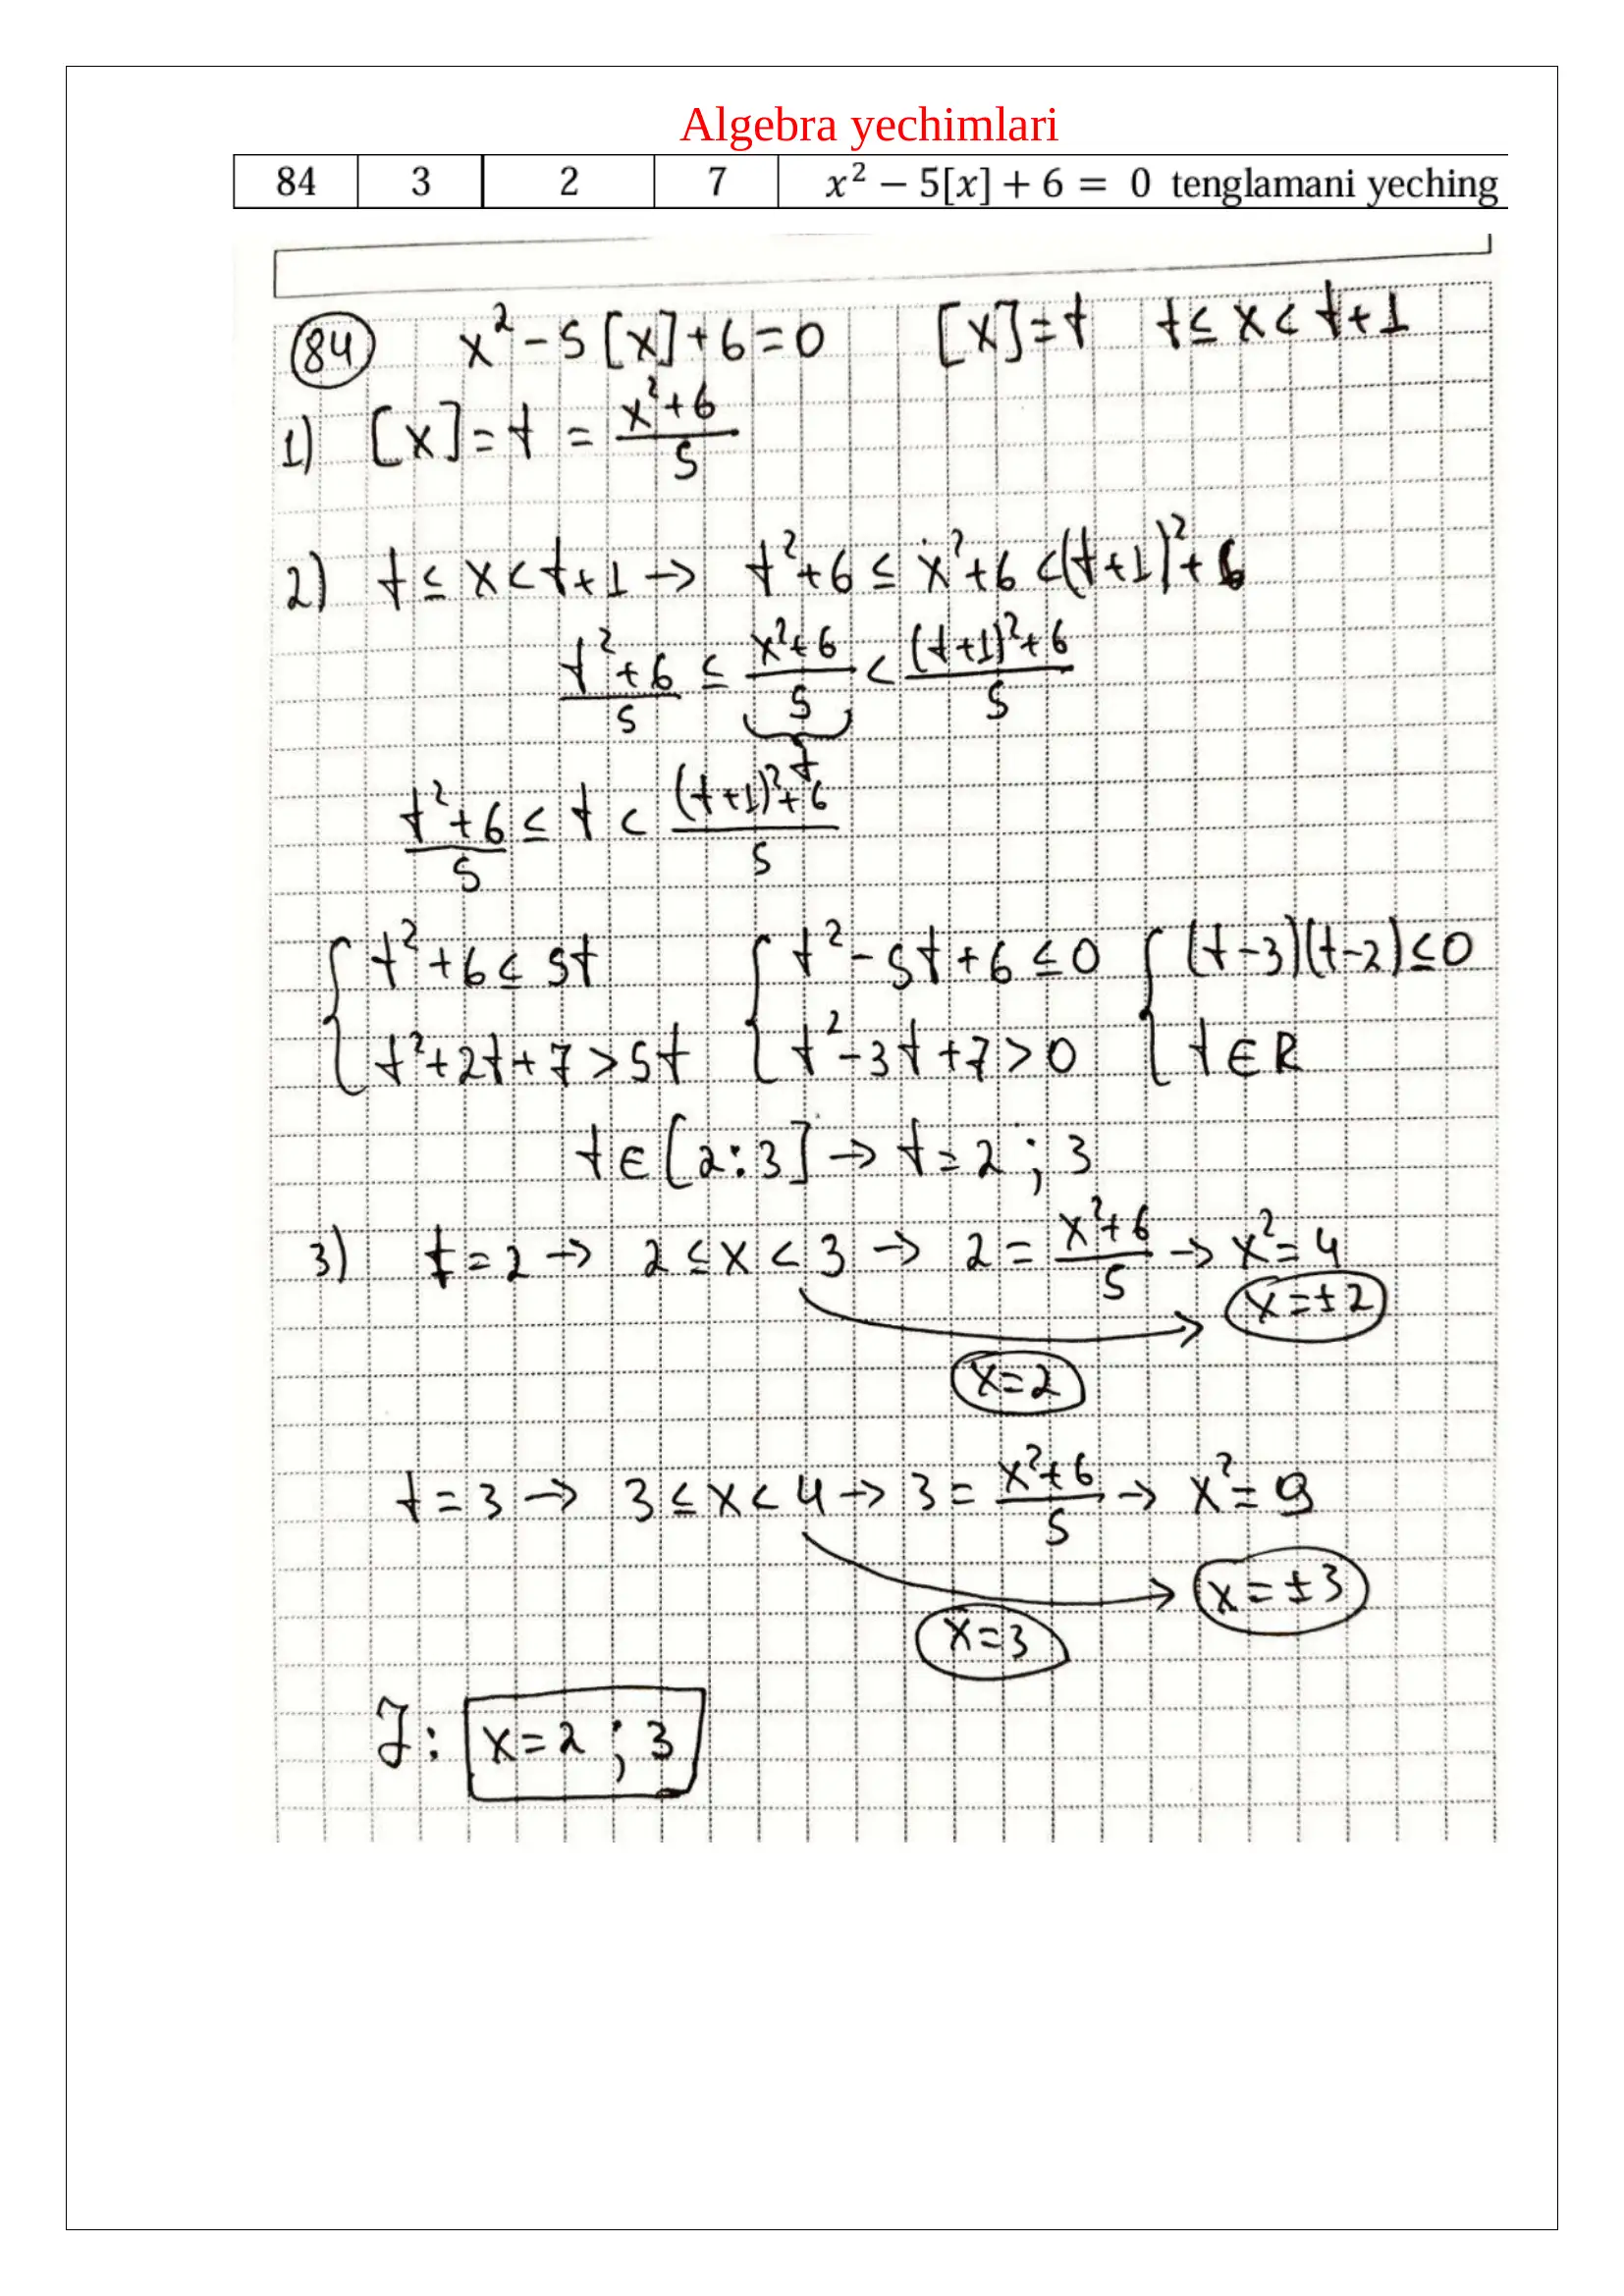 Algebra yechimlari
84 3 2 7 x² − 5[x] + 6 = 0 tenglamani yeching
84 x²-5[x]+6=0 [x]=t t≤x<t+1
1) [x]=t=(x²+6)/5
2) t≤x<t+1→ t²+6≤x²+6<(t+1)²+6
(t²+6)/5 ≤ (x²+6)/5 < ((t+1)²+6)/5
t
(t²+6)/5 ≤ t < ((t+1)²+6)/5
{ t²+6≤5t { t²-5t+6≤0 { (t-3)(t-2)≤0
t²+2t+7>5t t²-3t+7>0 t∈R
t∈[2:3]→t=2;3
3) t=2→ 2≤x<3→ 2=(x²+6)/5→x²=4
x=±2
x=2
t=3→ 3≤x<4→3=(x²+6)/5→ x²=9
x=±3
x=3
J: x=2;3